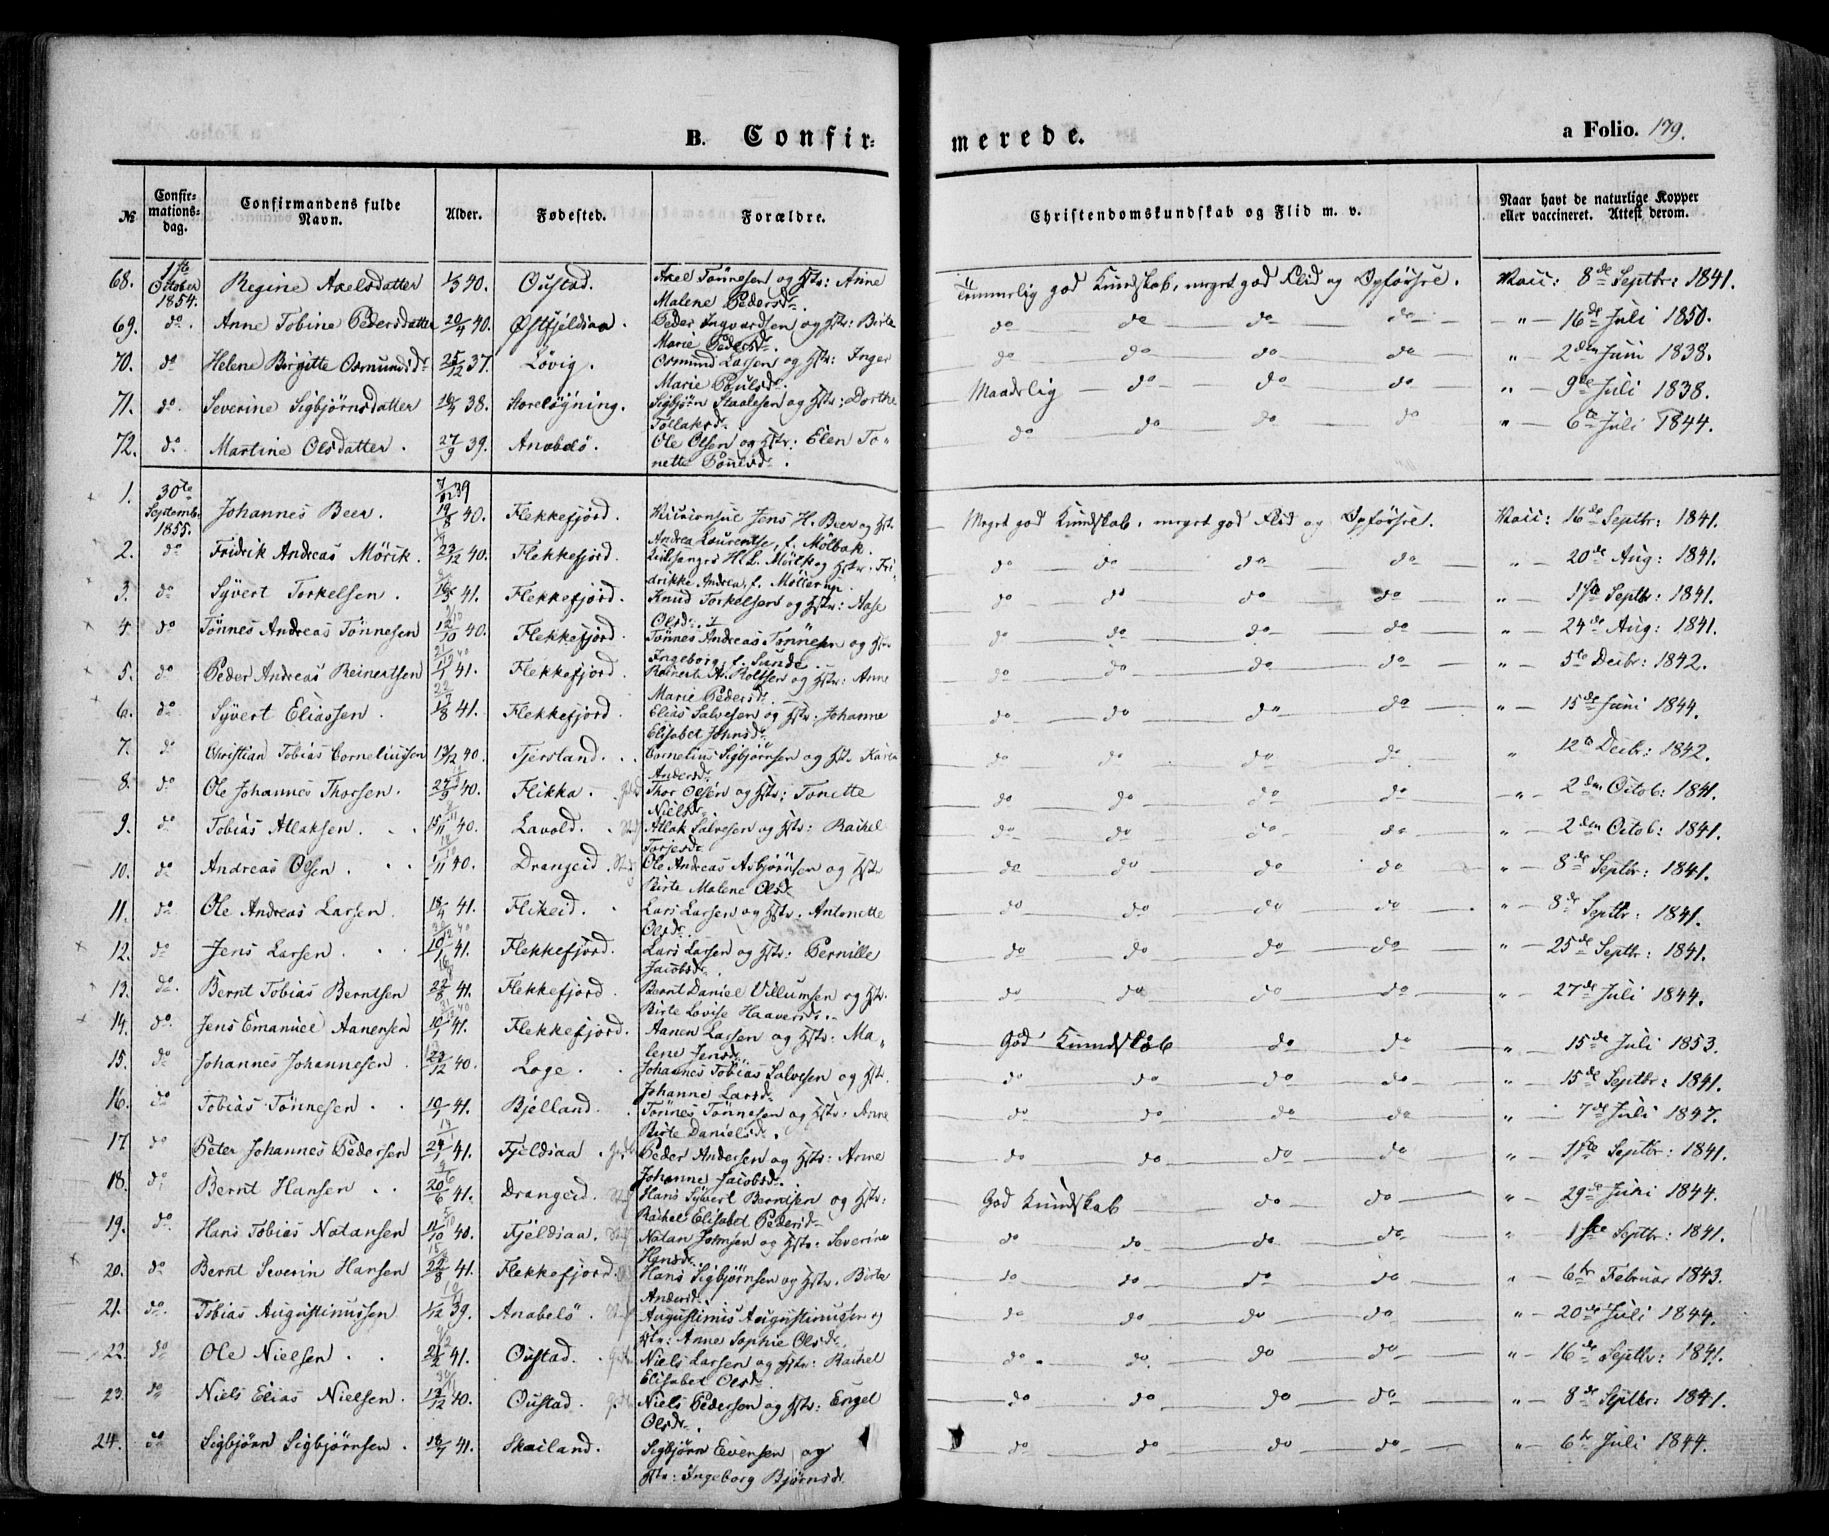 B. Confir- merede.
a Folio. 179.
№ Confirmations-dag. Confirmandens fulde Navn. Alder. Fødested. Forældre. Christendomskundskab og Flid m. v. Naar havt de naturlige Kopper eller vaccineret. Attest derom.
68. 1ste October 1854. Regine Axelsdatter 1/3 40. Oustad. Axel Tönnesen og Hstr: Anne Malene Pedersd. Temmerlig god Kundskab, meget god Flid og Opførsel. Vacc: 8de Septbr: 1841.
69. do. Anne Tobine Pedersdatter 20/4 40. Østfjeldsaa. Peder Ingvardsen og Hstr: Birte Marie Pedersd. do do do do " 16de Juli 1850.
70. do Helene Birgitte Osmundsd. 25/12 37. Løvig. Osmund Larsen og Hstr: Inger Marie Poulsd. do do do do " 2den Juni 1838.
71. do. Severine Sigbjørnsdatter 38. Storeløgning. Sigbjørn Staalesen og Hstr: Dorthe Tollaksd. Maadelig do do do " 9de Juli 1838.
72. do. Martine Olsdatter. 27/9 39. Anabelö. Ole Olsen og Hstr: Elen Tonette Pouelsd. do do do do " 6te Juli 1844.
1. 30te Septemb. 1855. Johannes Beer. 19/8 40. Flekkefjord. Jens H. Beer og Hst. Andrea Laurentse, f. Mølbak. Meget god Kundskab, meget god Flid og Opførsel. Vacc: 16de Septbr: 1841.
2. do Fridrik Andreas Mörik. 23/12 40. Flekkefjord. Kirkesanger H. L. Mörik og Hstr. Fridrikke Andrea, f. Möllerup. do do do do " 20de Aug: 1841.
3. do Syvert Torkelsen. 41. Flekkefjord. Knud Torkelsen og Hstr: Aase Olsd. do do do do " 17de Septbr: 1841.
4. do Tönnes Andreas Tönnesen 12/10 40. Flekkefjord. Tönnes Andreas Tönnesen og Hstr. Ingeborg, f. Sunde. do do do do " 24de Aug: 1841.
5. do Peder Andreas Reinertsen 41. Flekkefjord. Reinert A. Rolfsen og Hstr: Anne Marie Pedersd. do do do do " 5te Decbr: 1842.
6. do Syvert Eliassen. 41. Flekkefjord. Elias Salvesen og Hstr: Johanne Elisabet Johnsd. do do do do " 15de Juni 1844.
7. do Christian Tobias Corneliussen 13/12 40. Tjersland. Cornelius Sigbjørnsen og Hstr. Karen Andersd. do do do do " 12te Decbr: 1842.
8. do Ole Johannes Thorsen. 27/9 40. Flikka. Thor Olsen og Hstr: Tonette Nielsd. do do do do " 2den Octob: 1841.
9. do Tobias Atlaksen. 15/11 40. Lavold. Atlak Salvesen og Hstr: Rachel Torjesd. do do do do " 2den Octob: 1841.
10. do Andreas Olsen. 1/11 40. Drangeid. Ole Andreas Asbjørnsen og Hstr Birte Malene Olsd. do do do do " 8de Septbr: 1841.
11. do Ole Andreas Larsen. 18/4 41. Flikeid. Lars Larsen og Hstr. Antonette Olsd. do do do do " 8de Septbr: 1841.
12. do Jens Larsen. 10/1 41. Flekkefjord. Lars Larsen og Hstr: Pernille Jacobsd. do do do do " 25de Septbr: 1841.
13. do. Bernt Tobias Berntsen 22/8 41. Flekkefjord. Bernt Daniel Villumsen og Hstr. Birte Lovise Haaversd. do do do do " 27de Juli 1844.
14. do. Jens Emanuel Aanensen 10/1 41. Flekkefjord. Aanen Larsen og Hstr: Malene Jensd. God Kundskab do do " 15de Juli 1853.
15. do Johannes Johannesen. 23/12 40. Loge. Johannes Tobias Salvesen og Hstr. Johanne Larsd. do do do do " 15de Septbr: 1841.
16. do Tobias Tönnesen. 10/1 41. Bjelland. Tönnes Tönnesen og Hstr: Anne Birte Danielsd. do do do do " 7de Juli 1847.
17. do Peter Johannes Pedersen 24/1 41. Fjeldsaa. Peder Andersen og Hstr: Anne Johanne Jacobsd. do do do do " 1ste Septbr: 1841.
18. do Bernt Hansen. 20/6 41. Drangeid. Hans Syvert Berntsen og Hstr: Rachel Elisabet Pedersd. God Kundskab do do " 29de Juni 1844.
19. do. Hans Tobias Natansen 11/10 40. Fjeldsaa. Natan Johnsen og Hstr. Severine Hansd. do do do do " 1ste Septbr: 1841.
20. do Bernt Severin Hansen 22/8 41. Flekkefjord. Hans Sigbjørnsen og Hstr. Birte Andersd. do do do do " 6te Februar 1843.
21. do. Tobias Augustinussen 1/12 39. Anabelö. Augustinus Augustinussen og Hstr: Anne Sophie Olsd. do do do do " 20de Juli 1844.
22. do Ole Nielsen. 21/2 41. Oustad. Niels Larsen og Hstr: Rachel Elisabet Olsd. do do do do " 16de Septbr: 1841.
23. do Niels Elias Nielsen. 13/12 40. Oustad. Niels Pedersen og Hstr: Engel Olsd. do do do do " 8de Septbr: 1841.
24. do Sigbjørn Sigbjørnsen. 18/7 41. Skailand. Sigbjørn Evensen og Hstr: Ingeborg Bjørnsd. do do do do " 6te Juli 1844.